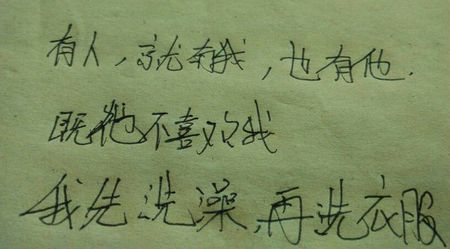 有人，就有我，也有他.
既他不喜欢我
我先洗澡,再洗衣服